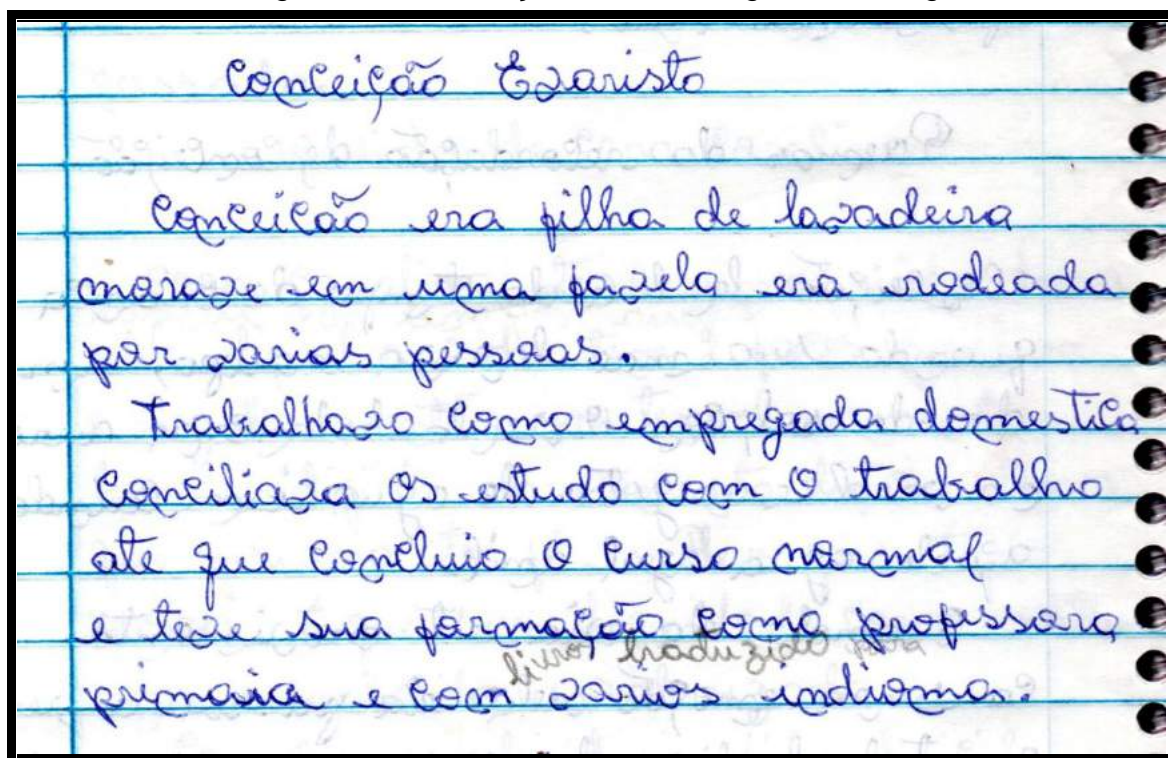 Conceição Evaristo
Conceicão era filha de lavadeira
morave em uma favela era rodeada
por varias pessoas.
Trabalhavo como empregada domestica
conciliava os estudo com o trabalho
ate que concluio o curso normal
e teve sua formação como professora
livros traduzido para
primaria e com varios indioma.